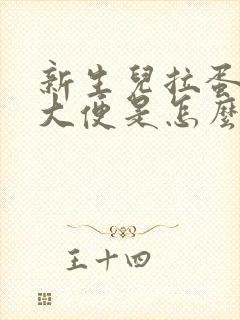 新生兒拉蛋
大便是怎麼
王十四